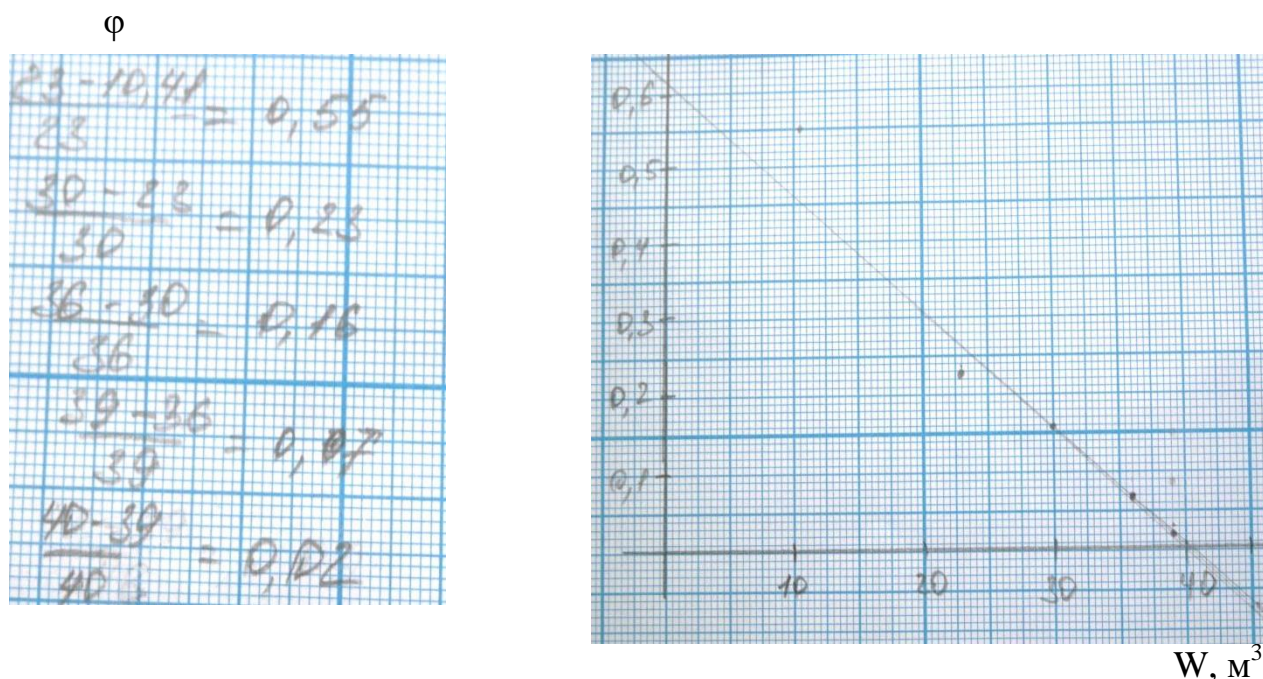 φ
23 - 10,41 / 23 = 0,55
30 - 23 / 30 = 0,23
36 - 30 / 36 = 0,16
39 - 36 / 39 = 0,07
40 - 39 / 40 = 0,02
0,6
0,5
0,4
0,3
0,2
0,1
10 20 30 40
W, м³